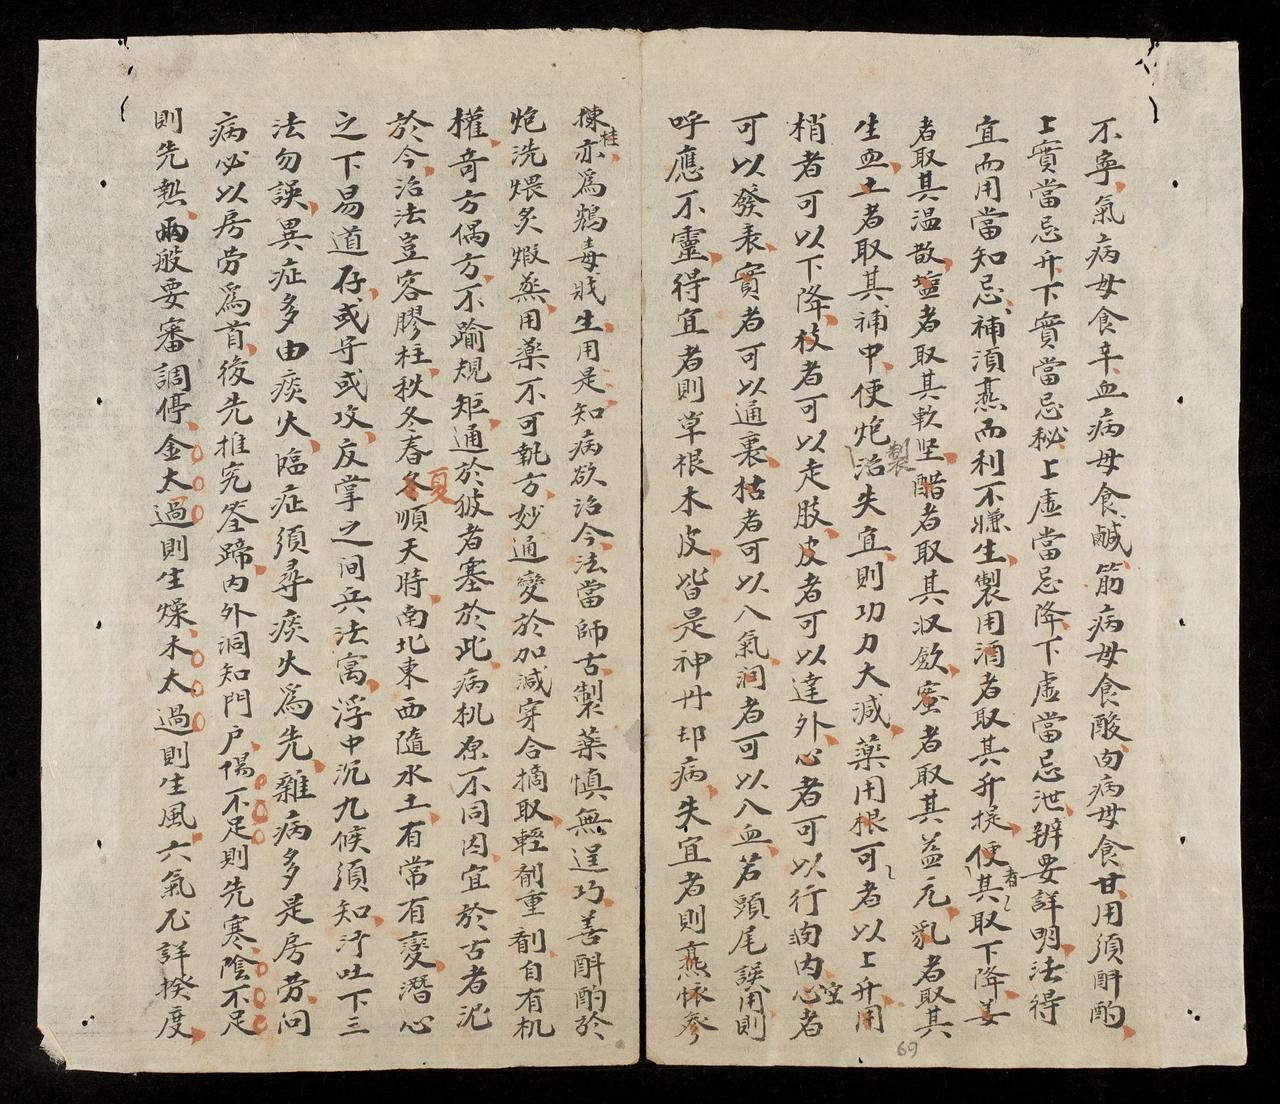 不寧氣病毋食辛血病毋食鹹筋病毋食酸肉病毋食甘用須酙酌
上實當忌升下實當忌秘上虛當忌降下虛當忌泄辨要詳明法得
宜而用當知忌補須燕而利不嫌生製用酒者取其升提便其者取下降姜
者取其温散塩者取其軟坚醋者取其収歛蜜者取其益元乳者取其
生血土者取其補中使炮治製失宜則功力大減藥用根可者以上升用
梢者可以下降枝者可以走肢皮者可以達外心者可以行内心空者
可以發表實者可以通裏枯者可以入氣润者可以入血若頭尾誤用則
呼應不靈得宜者則草根木皮皆是神丹却病失宜者則燕恢參
揀桂亦爲鴆毒戕生用是知病欲治今法當師古製藥慎無逞巧善酙酌於
炮洗煨炙煅蒸用藥不可執方妙通變於加減穿合摘取輕劑重劑自有机
權竒方偶方不踰規矩通於彼者塞於此病机原不同因宜於古者泥
於今治法豈容膠柱秋冬春夏順天時南北東西隨水土有常有變潛心
之下易道存或守或攻反掌之间兵法寓浮中沉九候須知汗吐下三
法勿誤異症多由痰火臨症須尋痰火爲先雜病多是房劳问
病必以房劳爲首後先推究筌蹄内外洞知門户陽不足則先寒陰不足
則先熱兩般要審調停金太過則生燥木太過則生風六氣尽詳揆度
69